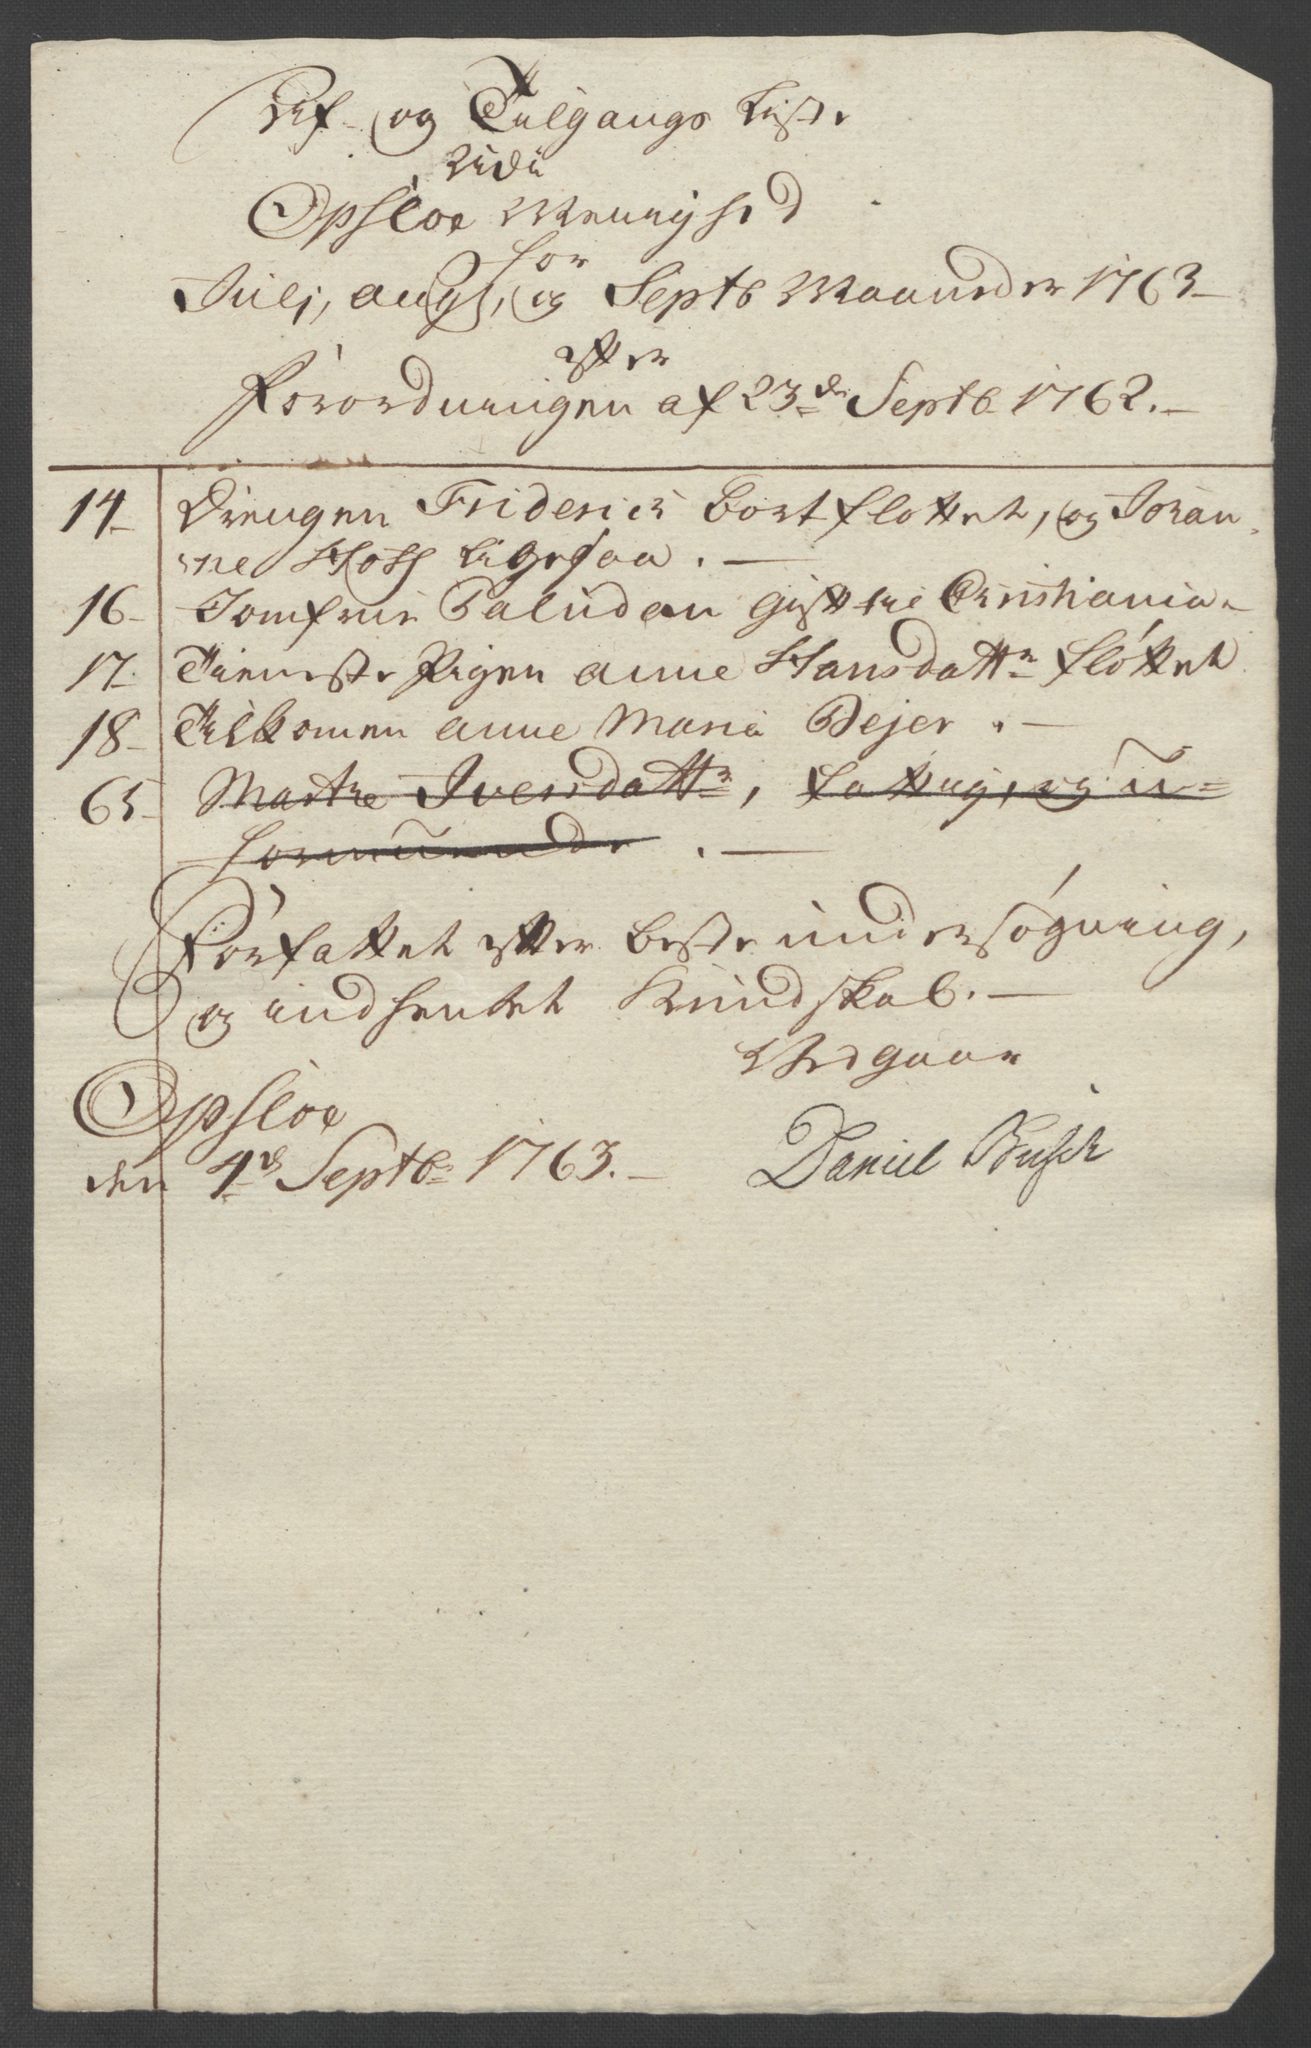 Af- og Tilgangs Liste
udi
Opsloe Menighed
for
Julj, aug:, og Septb Maaneder 1763
efter
Forordningen af 23de Septb 1762.
14 Drengen Friderich bortflottet, og Johan-
ne Hoff ligesaa.
16 Jomfrue Paludan gift til Christiania
17 Tieneste Pigen anne Hansdattr flöttet
18 Tilkomen anne Maria Bejer.
65 Marthe Iversdattr, fattig, og u=
formuende.
Forfattet efter beste undersøgning,
og indhentet Kundskab.
Vedgaar
Opsloe
den 4d Septb 1763. Daniel Busch